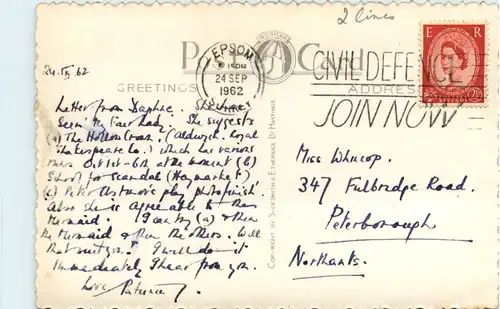 2 lines
POST CARD
EPSOM
24 SEP
1962
SURREY
CIVIL DEFENCE
JOIN NOW
E R
2½D
GREETINGS
ADDRESS
COPYRIGHT BY SHOESMITH & ETHERIDGE LTD HASTINGS
24.IX.62
Letter from Daphne. She has
seen My Fair Lady. She suggests
(a) The Hollow Crown (Aldwych. Royal
Shakespeare Co.) which has various
runs Oct 1st-6th at the moment (b)
School for Scandal (Haymarket)
(c) Peter Ustinov's play photo finish.
Also she is agreeable to the
Mermaid. I can try (a) & then
the Mermaid & then the others. Will
that suit you? I will do it
immediately I hear from you.
Love
Miss Whincop.
347 Fulbridge Road.
Peterborough
Northants.